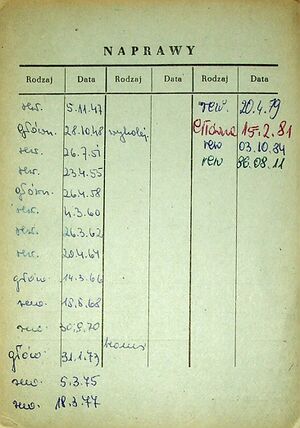 NAPRAWY
Rodzaj Data Rodzaj Data Rodzaj Data
rew. 5.11.47 rew. 20.4.79
główn. 28.10.48 wykolej. Główna 15.2.81
rew. 26.7.51 rew 03.10.84
rew. 23.4.55 rew 86.08.11
główn. 26.4.58
rew. 4.3.60
rew. 26.3.62
rew. 20.4.64
główn. 14.3.66
rew. 18.8.68
rew. 30.9.70
główn. 31.1.73
rew. 5.3.75
rew. 18.3.77